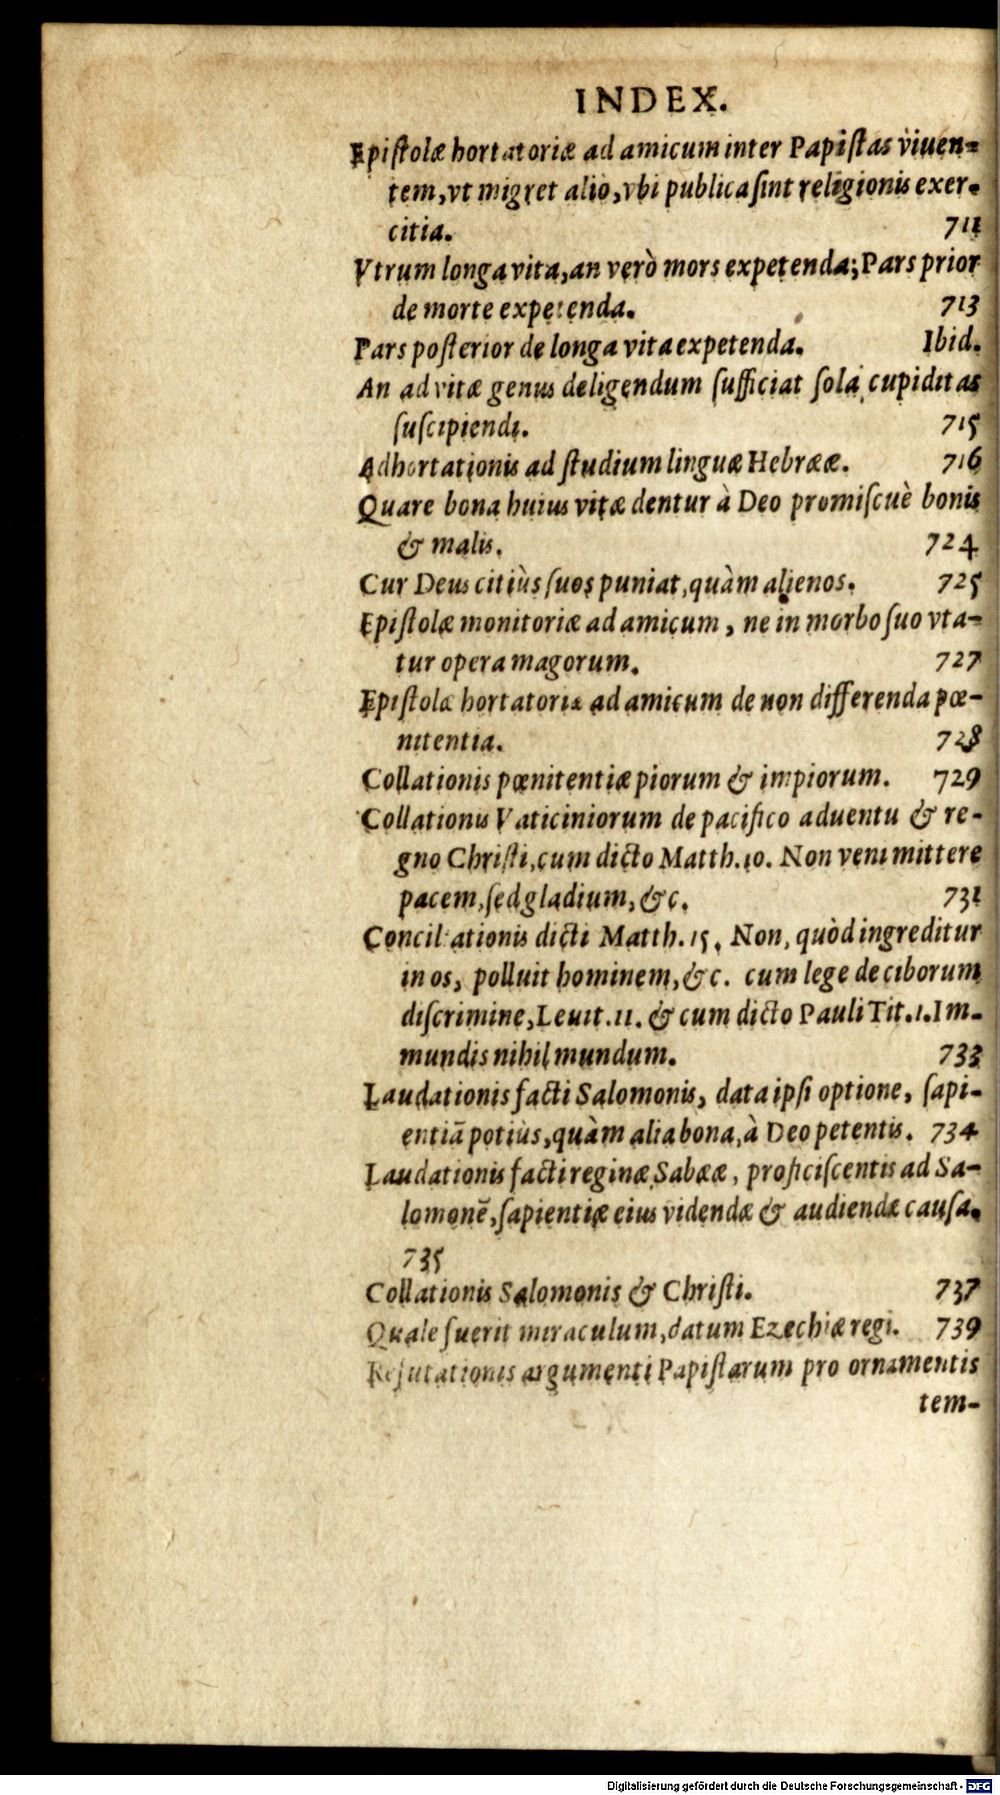 INDEX.
Epiſtolæ hortatoriæ ad amicum inter Papiſtas viuen-
tem, vt migret alio, vbi publica ſint religionis exer-
citia. 711
Vtrum longa vita, an verò mors expetenda; Pars prior
de morte expetenda. 713
Pars poſterior de longa vita expetenda. Ibid.
An ad vitæ genus deligendum ſufficiat ſola cupiditas
ſuſcipiendi. 715
Adhortationis ad ſtudium linguæ Hebrææ. 716
Quare bona huius vitæ dentur à Deo promiſcuè bonis
& malis. 724
Cur Deus citiùs ſuos puniat, quàm alienos. 725
Epiſtolæ monitoriæ ad amicum, ne in morbo ſuo vta-
tur opera magorum. 727
Epiſtolæ hortatoriæ ad amicum de non differenda pœ-
nitentia. 728
Collationis pœnitentiæ piorum & impiorum. 729
Collationis Vaticiniorum de pacifico aduentu & re-
gno Chriſti, cum dicto Matth. 10. Non veni mittere
pacem, ſed gladium, &c. 731
Conciliationis dicti Matth. 15. Non, quòd ingreditur
in os, polluit hominem, &c. cum lege de ciborum
diſcrimine, Leuit. 11. & cum dicto Pauli Tit. 1. Im-
mundis nihil mundum. 733
Laudationis facti Salomonis, data ipſi optione, ſapi-
entiã potiùs, quàm alia bona, à Deo petentis. 734
Laudationis facti reginæ Sabææ, proficiſcentis ad Sa-
lomonẽ, ſapientiæ eius videndæ & audiendæ cauſa.
735
Collationis Salomonis & Chriſti. 737
Quale fuerit miraculum, datum Ezechiæ regi. 739
Refutationis argumenti Papiſtarum pro ornamentis
tem-
Digitalisierung gefördert durch die Deutsche Forschungsgemeinschaft - DFG